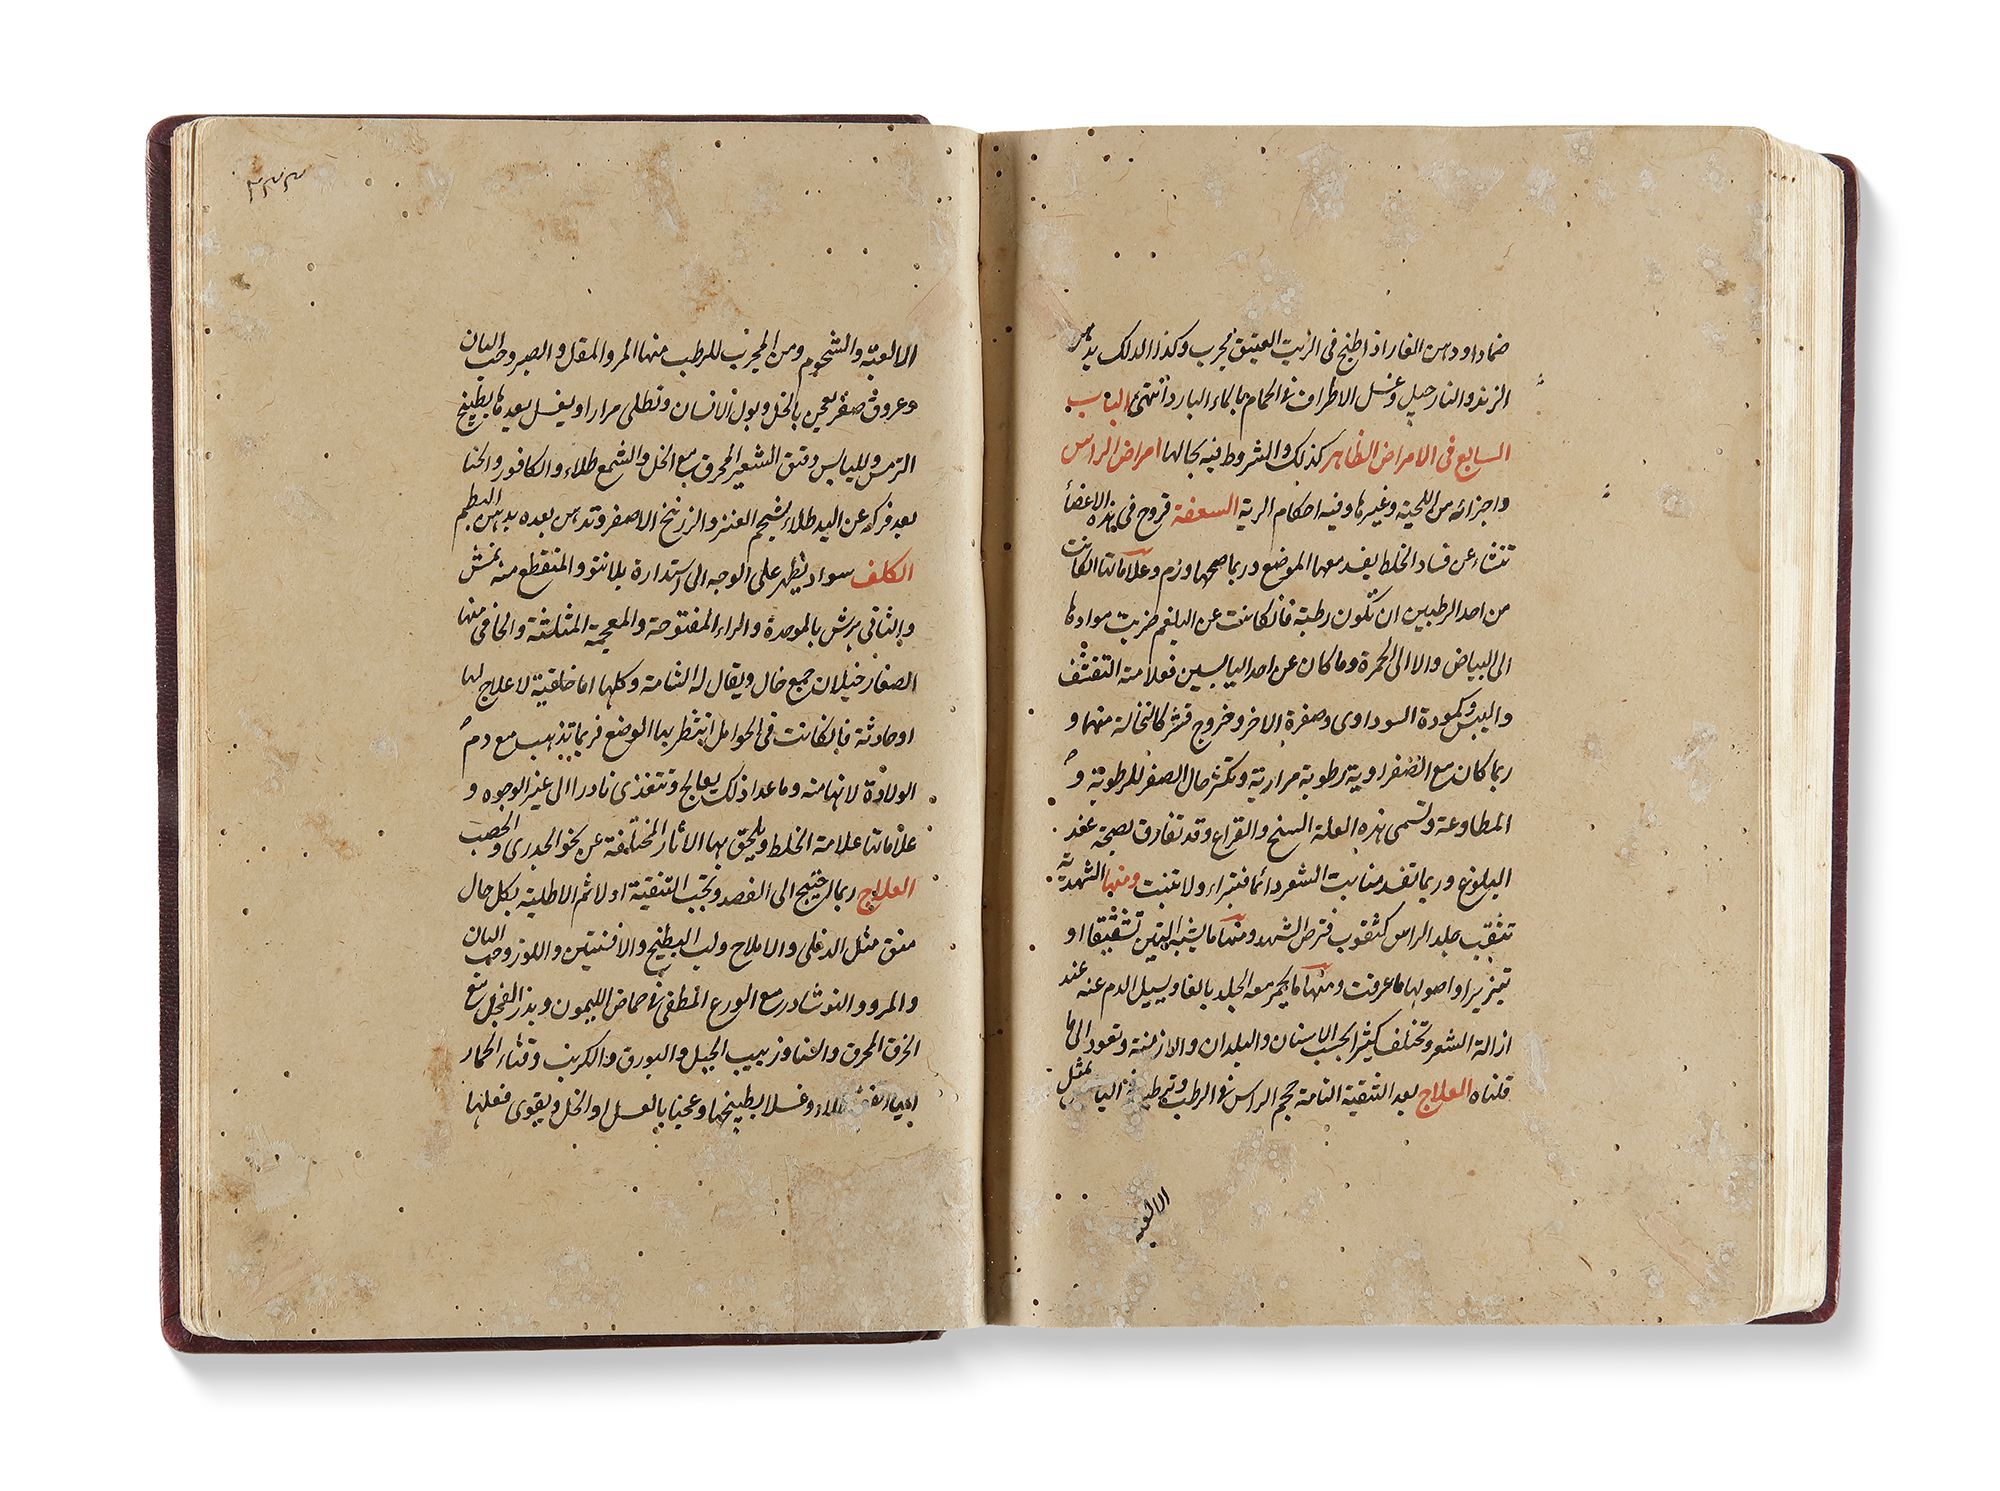 ضمادا ودهن الفار اذا طبخ فى الزيت العتيق مجرب وكذا الدلك بدهن
الزنبد والنارجيل وغسل الاطراف فى الحمام بالماء البارد انتهى الباب
السابع فى الامراض الظاهر كذلك والشروط فيه بحالها امراض الراس
واجزائه من اللحية وغيرها وفيه احكام الرية السعفة قروح فى هذه الاعضأ
تنشاء عن فساد الخلط يفسد معها الموضع وربما صحبها ورم وعلاماتها الكائنت
من احد الرطبين ان تكون رطبة فان كانت عن البلغم ضربت موادها
الى البياض والا الى الحمرة وما كان عن احد اليابسين فعلامته التقشف
واليبس وكمودة السوداوى وصفرة الاخر وخروج قشر كالنخالة منهما و
ربما كان مع الصفراوية رطوبة مرارية وتكثر حال الصغر للرطوبة و
المطاوعة وتسمى هذه العلة السنج والقراع وقد تفارق بصحة عند
البلوغ وربما تفسد منابت الشعر دائما فتبراء ولا تنبت ومنها الشهدية
تثقب جلد الراس كثقوب قرص الشهد ومنها ما يشبه التين تشقيقا او
تبزيرا واصولها ما عرفت ومنها ما يحمر معه الجلد بالغا ويسيل الدم عنه عند
ازالة الشعر وتختلف كثيرا بحسب الاسنان والبلدان والازمنة وتعود الى ما
قلناه العلاج بعد التنقية التامة حجم الراس فى الرطب وترطيبه فى اليابس بمثل
الالعبه
٣٣٣
الالعبة والشحوم ومن المجرب للرطب منها المر والمقل والصبر وحب البان
وعروق صفر يعجن بالخل وبول الانسان وتطلى مرارا ويغسل بعدها بطبيخ
الترمس ولليابس دقيق الشعير المحرق مع الخل والشمع طلاء والكافور والحنا
بعد فركه عن اليد طلاء بشحم العنز والزرنيخ الاصفر وتدهن بعده بدهن البطم
الكلف سواد تظهر على الوجه الى استدارة بلا نتو والمتقطع منه نمش
والثاتى برش بالموحدة والراء المفتوحة والمعجمة المثلثة والخافى منها
الصغار خيلان جمع خال ويقال له الشامة وكلها اما خلقية لا علاج لها
او حادثة فان كانت فى الحوامل انتظر بها الوضع فربما تذهب مع دم
الولادة لانها منه وما عدا ذلك يعالج وتتغذى نادرا الى غير الوجوه و
علاماتها علامة الخلط ويلحق بها الاثار المختلفة عن نحو الجدرى والحصب
العلاج ربما احتيج الى الفصد وتجب التنقية اولا ثم الاطلية بكل حال
منق مثل الدفلى والاملاح ولب البطيخ والافسنتين واللوز وحب البان
والمر والنوشادر مع الورع المطفى فى حماض الليمون وبذر الفجل مع
الخزف المحرق والقنا وزبيب الجبل والبورق والكرنب وقثاء الحمار
طلاء وغسلا بطبيخها وعجنا بالعسل او الخل ويقوى فعلها